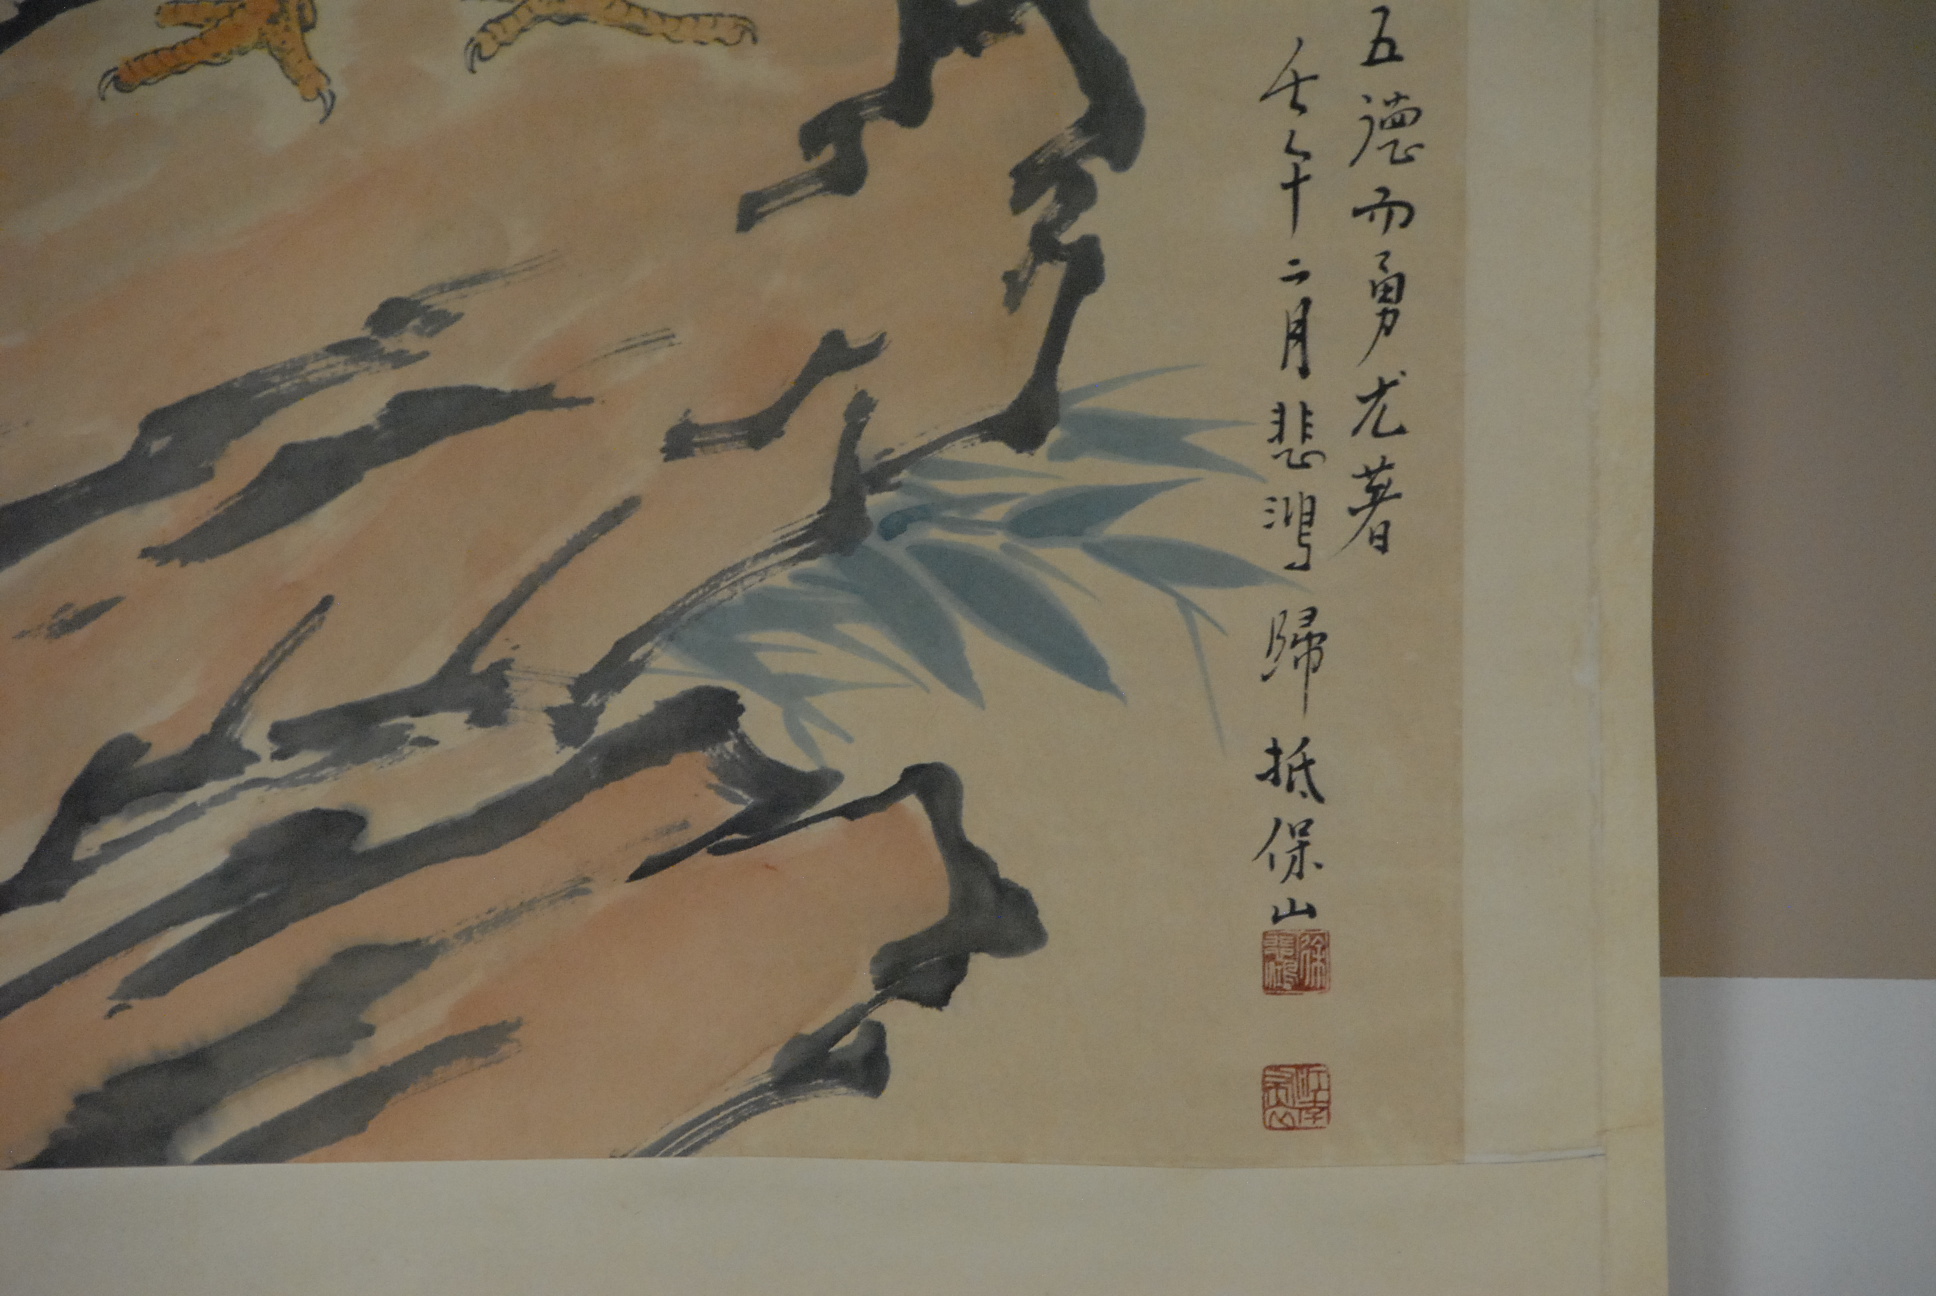 五德而勇尤著
壬午二月悲鴻歸抵保山
徐悲鴻
江南